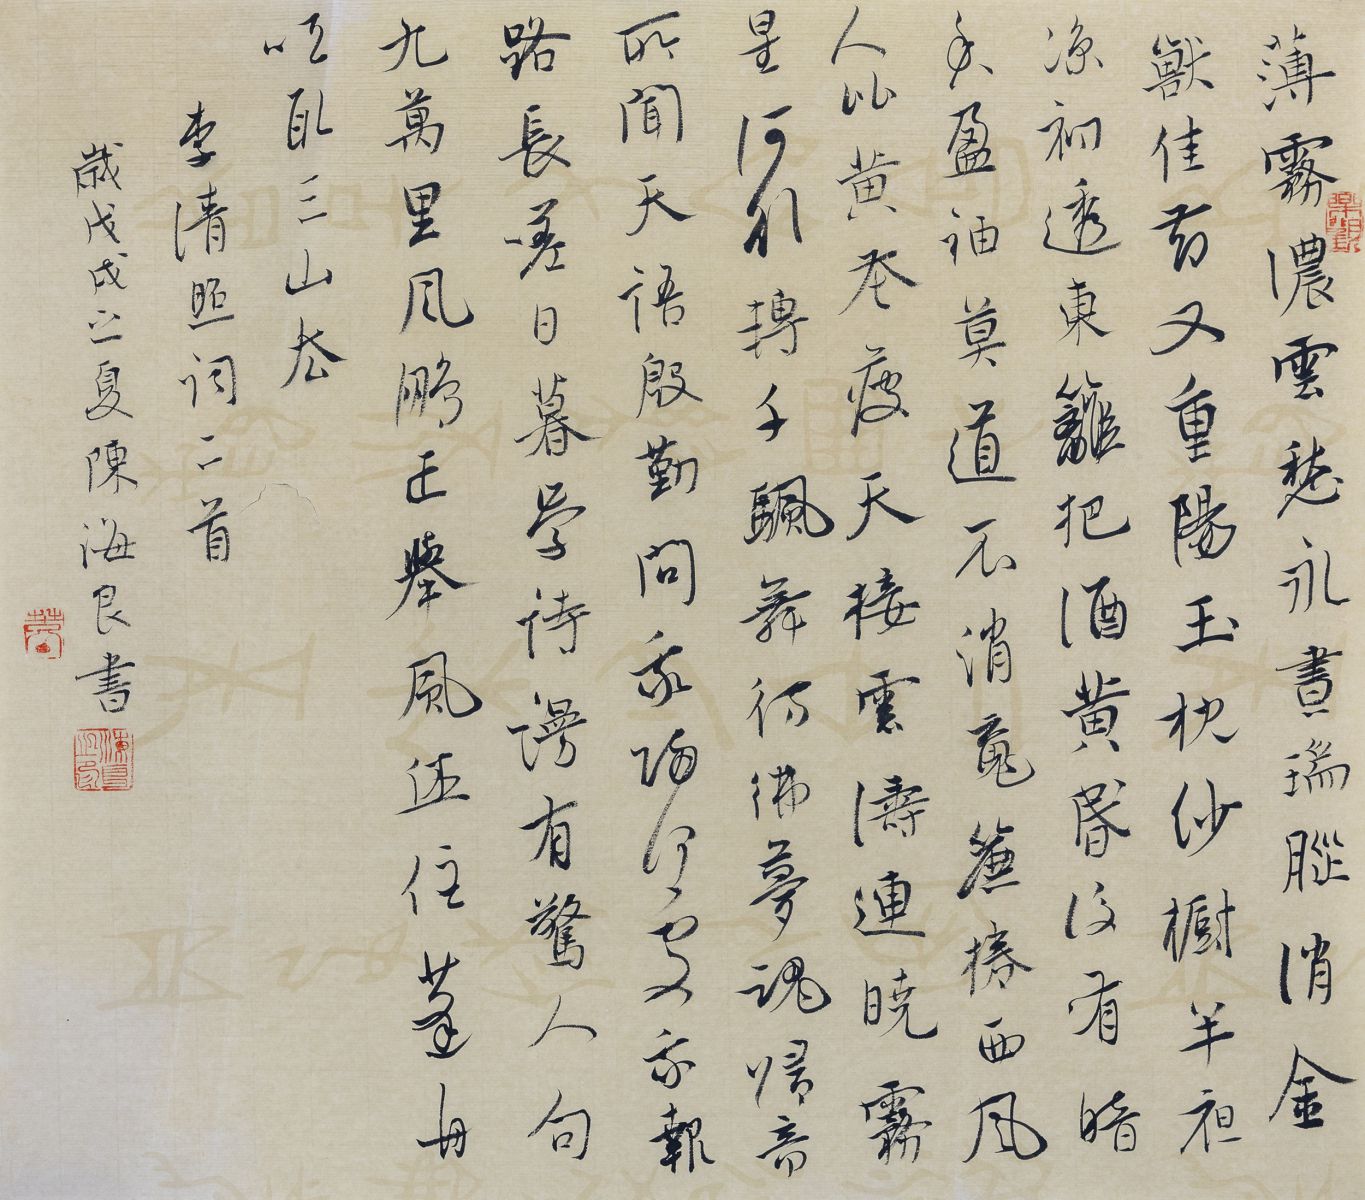 薄霧濃雲愁永晝瑞腦消金
獸佳節又重陽玉枕紗櫥半
涼初透東籬把酒黃昏後有暗
香盈袖莫道不消魂簾捲西風
人比黃花瘦天接雲濤連曉霧
星河欲轉千颿舞彷彿夢魂歸帝
所聞天語殷勤問我歸何處我報
路長嗟日暮學詩謾有驚人句
九萬里風鵬正舉風休住蓬舟
吹取三山去
李清照詞二首
歲戊戌之夏陳海良書